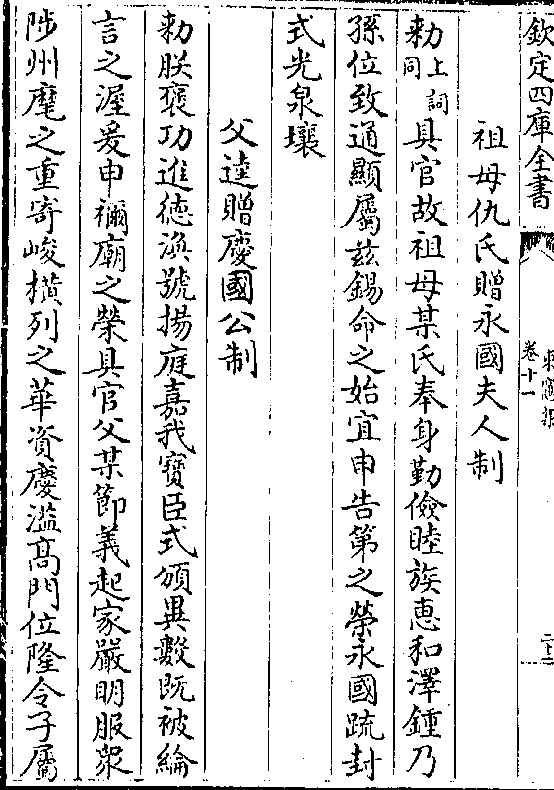 欽定四庫全書
卷十一
祖母仇氏贈永國夫人制
勅上詞同具官故祖母某氏奉身勤儉睦族惠和澤鍾乃
孫位致通顯屬兹錫命之始宜申告第之榮永國疏封
式光泉壤
父逵贈慶國公制
勅朕褒功進德渙號揚庭嘉我寶臣式頒異數既被綸
言之渥爰申禰廟之榮具官父某節義起家嚴明服衆
陟州麾之重寄峻横列之華資慶濫髙門位隆令子屬